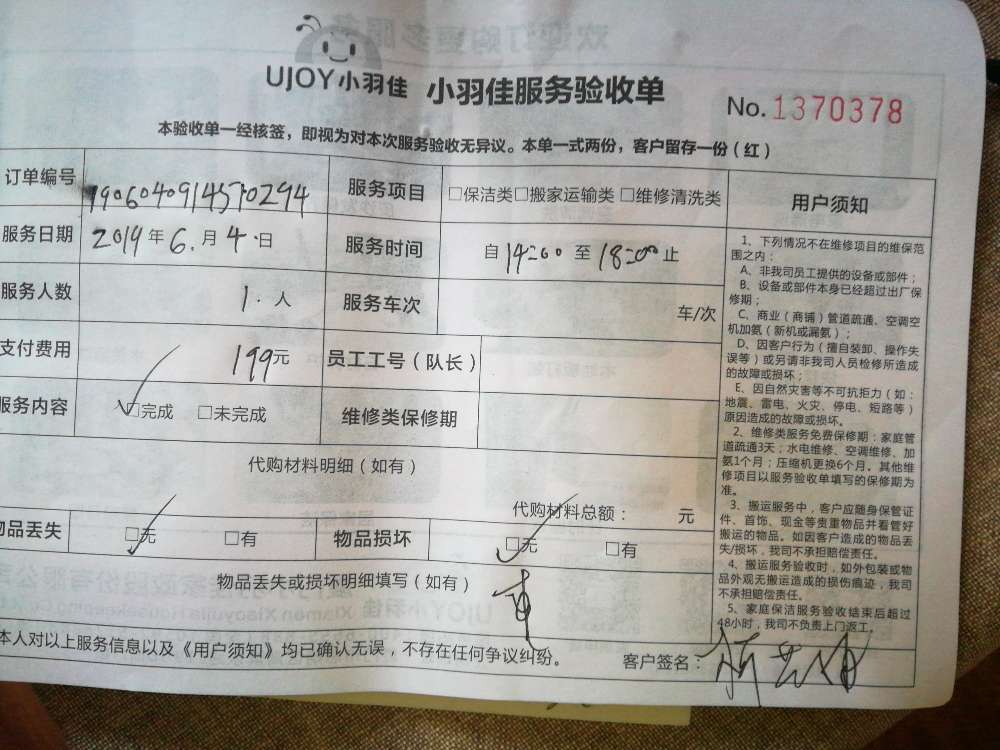 UJOY小羽佳 小羽佳服务验收单
No. 1370378
本验收单一经核签，即视为对本次服务验收无异议。本单一式两份，客户留存一份（红）
订单编号 服务项目 □保洁类□搬家运输类 □维修清洗类
服务日期 2019年6.月4.日 服务时间 自14:00至18:00止
服务人数 1.人 服务车次 车/次
支付费用 199元 员工工号（队长）
服务内容 □完成 □未完成 维修类保修期
代购材料明细（如有）
代购材料总额： 元
物品丢失 □无 □有 物品损坏 □无 □有
物品丢失或损坏明细填写（如有）
本人对以上服务信息以及《用户须知》均已确认无误，不存在任何争议纠纷。 客户签名：
用户须知
1、下列情况不在维修项目的维保范
围之内：
A、非我司员工提供的设备或部件；
B、设备或部件本身已经超过出厂保
修期；
C、商业（商铺）管道疏通、空调空
机加氨（新机或漏氨）；
D、因客户行为（擅自装卸、操作失
误等）或另请非我司人员检修所造成
的故障或损坏；
E、因自然灾害等不可抗拒力（如：
地震、雷电、火灾、停电、短路等）
原因造成的故障或损坏。
2、维修类服务免费保修期：家庭管
道疏通3天；水电维修、空调维修、加
氨1个月；压缩机更换6个月。其他维
修项目以服务验收单填写的保修期为
准。
3、搬运服务中，客户应随身保管证
件、首饰、现金等贵重物品并看管好
搬运的物品。如因客户造成的物品丢
失/损坏，我司不承担赔偿责任。
4、搬运服务验收时，如外包装或物
品外观无搬运造成的损伤痕迹，我司
不承担赔偿责任。
5、家庭保洁服务验收结束后超过
48小时，我司不负责上门返工。